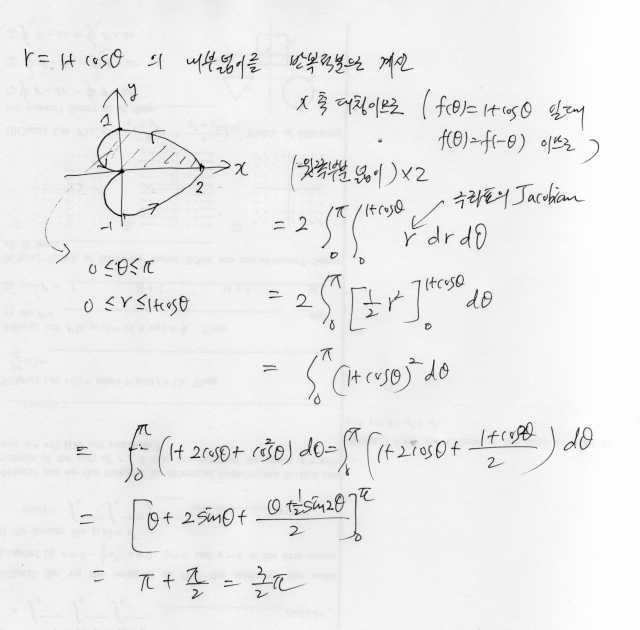 r = 1+cosθ 의 내부넓이를 반복적분으로 계산
x축 대칭이므로 ( f(θ)=1+cosθ 일때
f(θ)=f(-θ) 이므로 )
(윗쪽부분 넓이)×2
y
1
-1
x
2
-1
0≤θ≤π
0≤r≤1+cosθ
극좌표의 Jacobian
= 2 ∫₀^π ∫₀^(1+cosθ) r dr dθ
= 2 ∫₀^π [ 1/2 r² ]₀^(1+cosθ) dθ
= ∫₀^π (1+cosθ)² dθ
= ∫₀^π (1+2cosθ+cos²θ) dθ = ∫₀^π (1+2cosθ+ (1+cos2θ)/2 ) dθ
= [ θ+2sinθ+ (θ+1/2 sin2θ)/2 ]₀^π
= π + π/2 = 3/2 π